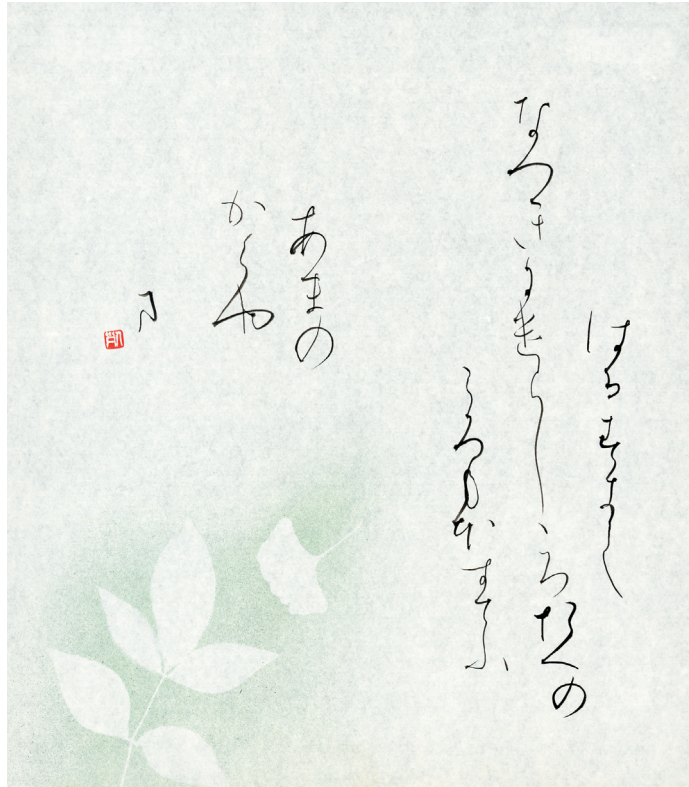 はるすきて
なつきにけらししろたへの
ころもほすてふ
あまの
かくや
ま